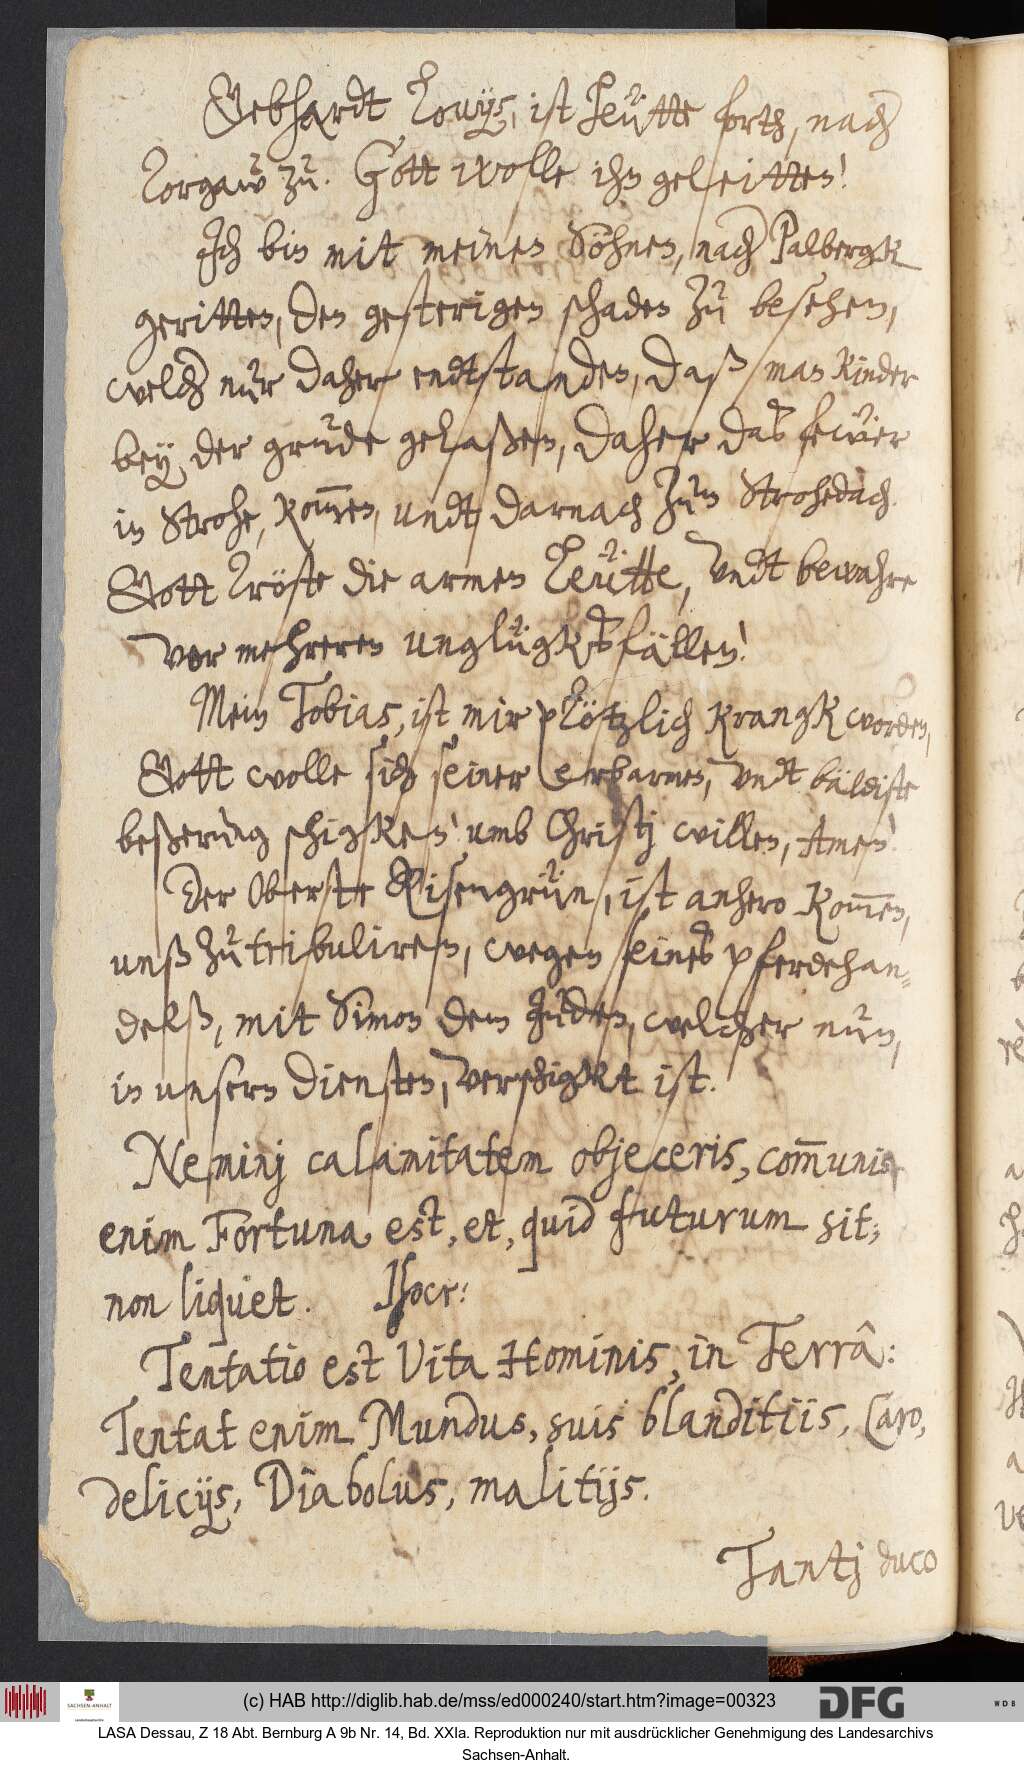 Gebhardt Louys, ist heütte forth, nach
Torgaw zu. Gott wolle ihn geleitten!
Ich bin mit meinen Söhnen, nach Palbergk
geritten, den gesterigen schaden zu besehen,
welch nur daher endtstanden, daß man Kinder
bey der grude gelaßen, daher das fewer
in Strohe, kom̄en, undt darnach zum Strohedach.
Gott tröste die armen Leütte, undt bewahre
vor mehreren unglügksfällen!
Mein Tobias, ist mir plötzlich krangk worden,
Gott wolle sich seiner erbarmen, undt bäldiste
beßerung schigken! umb Christj willen, Amen!
Der Oberste Risengrün, ist anhero kom̄en,
unß zu tribuliren, wegen seines pferdehan¬
delß, mit Simon dem Juden, welcher nun,
in unsern diensten, verschigkt ist.
Neminj calamitatem objeceris, com̄unis
enim Fortuna est, et, quid futurum sit;
non liquet. Isocr:
Tentatio est Vita Hominis, in Terrâ:
Tentat enim Mundus, suis blanditiis, Caro,
delicijs, Diabolus, malitijs.
Tantj duco
(c) HAB http://diglib.hab.de/mss/ed000240/start.htm?image=00323
SACHSEN-ANHALT
DFG
WDB
LASA Dessau, Z 18 Abt. Bernburg A 9b Nr. 14, Bd. XXIa. Reproduktion nur mit ausdrücklicher Genehmigung des Landesarchivs
Sachsen-Anhalt.